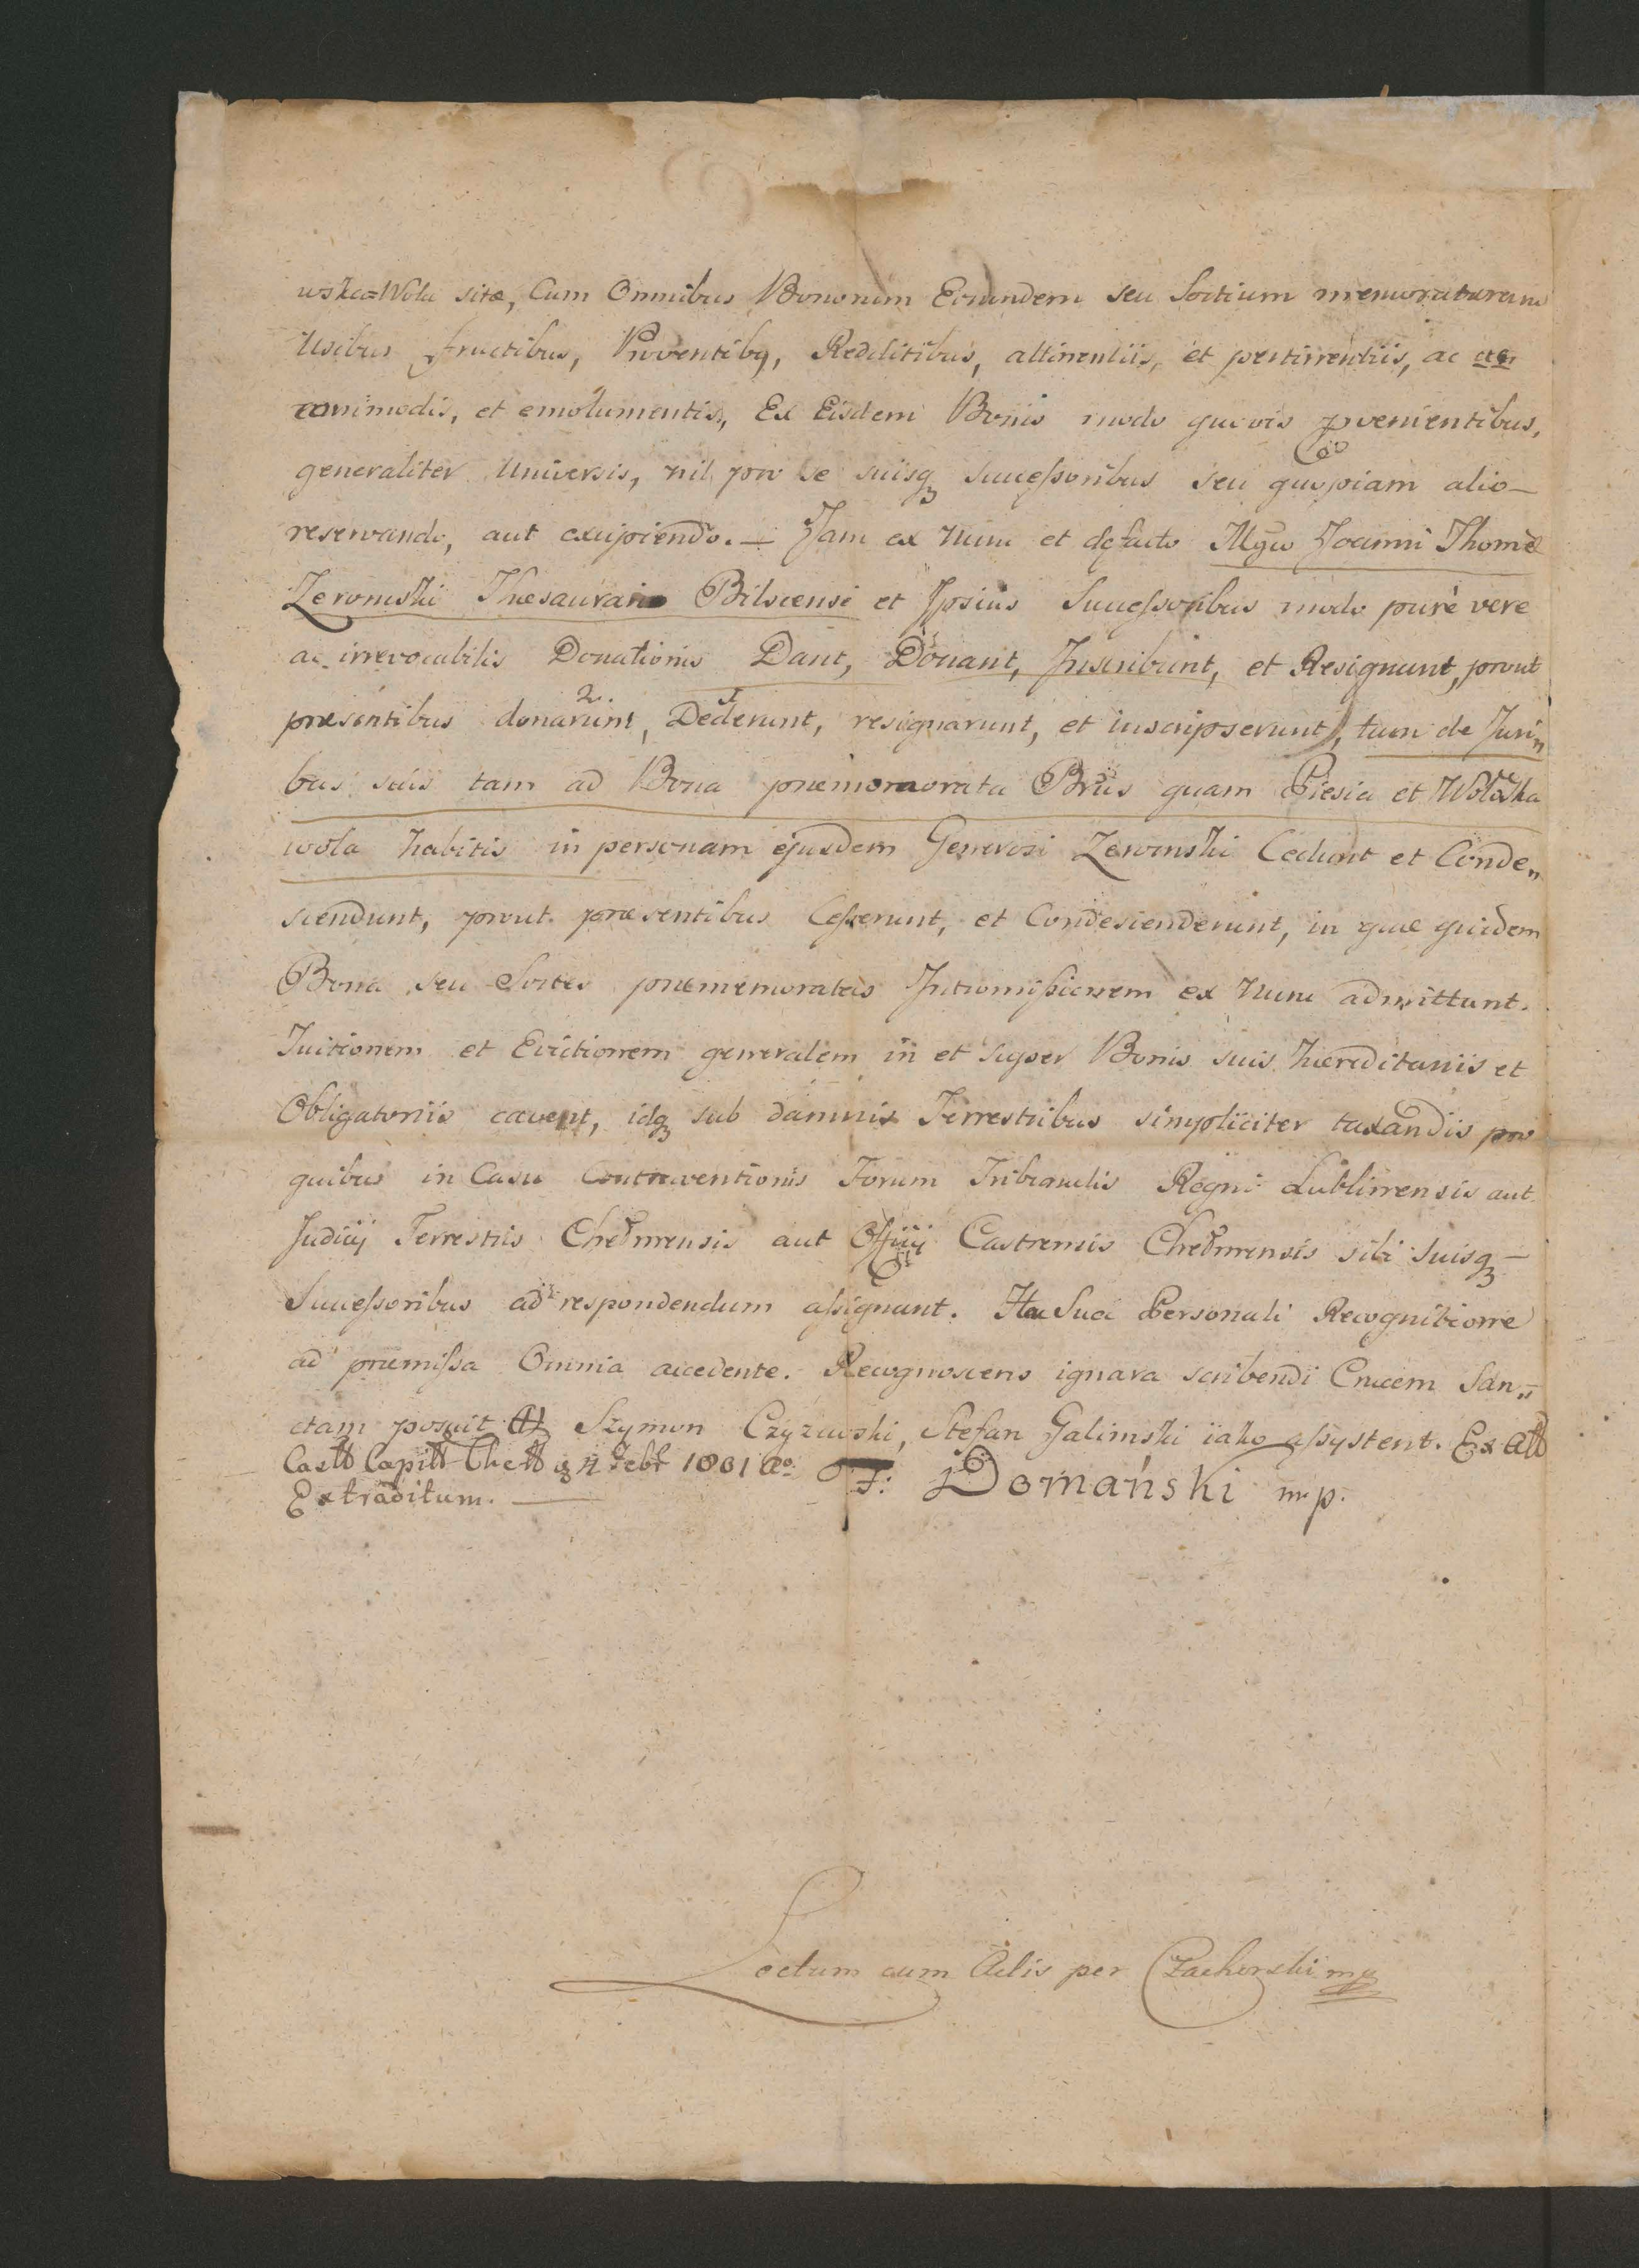 wska=Wola sitæ, Cum Omnibus Bonorum Eorundem seu Sortium memoratarum
Usibus fructibus, Proventibq, Redditibus, attinentiis, et pertinentiis, ac ac
commodis, et emolumentis, Ex Eisdem Bonis modo quovis pvenientibus,
generaliter Universis, nil pro se suisq Successoribus seu quopiam alio —
reservando, aut excipiendo. — Jam ex Nunc et defacto Mgco Joanni Thomæ
Zeromski Thesaurario Bilscensi et Ipsius Successoribus modo purè vere
ac irrevocabilis Donationis Dant, Donant, Inscribunt, et Resignant, prout
præsentibus donarunt, Dederunt, resignarunt, et inscripserunt, tum de Juri„
bus suis tam ad Bona præmemorata Brus quam Piesia et Wołoska
wola habitis in personam ejusdem Generosi Zeromski Cedunt et Conde„
scendunt, prout præsentibus Cesserunt, et Condescenderunt, in quæ quidem
Bona seu Sortes præmemoratas Intromissionem ex Nunc admittunt.
Tuitionem et Evictionem generalem in et super Bonis suis hæreditariis et
Obligatoriis cavent, idq sub damnis Terrestribus simpliciter taxandis pro
quibus in Casu Contraventionis Forum Tribunalis Regni Lublinensis aut
Judicij Terrestris Chełmensis aut Officij Castrensis Chełmensis sibi suisq —
Successoribus ad respondendum assignant. Ita Sua Personali Recognitione
ad præmissa Omnia accedente. Recognoscens ignara scribendi Crucem San„
ctam posuit Szymon Czyzewski, Stefan Galimski iako assystent. Ex Att
Castt Capitt Chett 4 Febr 1801 Ao. F: Domański mp.
Extraditum. —
Lectum cum Actis per Czachorski mp